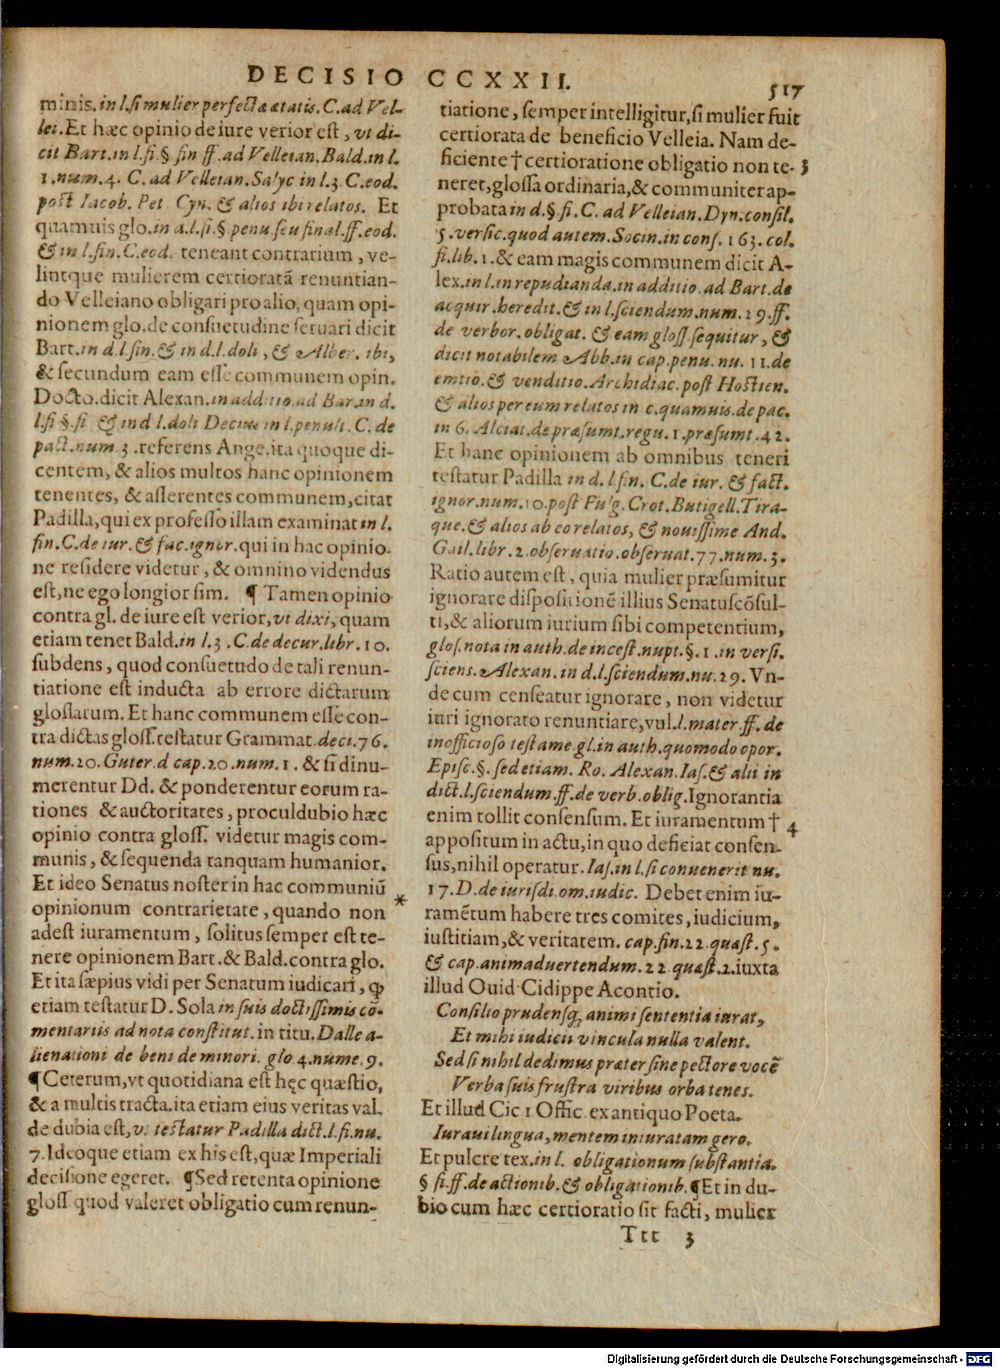 DECISIO CCXXII.
517
minis. in l. si mulier perfectæ ætatis. C. ad Vel-
lei. Et hæc opinio de iure verior est, vt di-
cit Bart. in l. fi. § fin ff. ad Velleian. Bald. in l.
1. num. 4. C. ad Velleian. Salyc in l. 3 C. eod.
post Iacob. Pet. Cyn. & alios ibi relatos. Et
quamuis glo. in d. l. fi. § penu. seu final. ff. eod.
& in l. fin. C. eod. teneant contrarium, ve-
lintque mulierem certioratã renuntian-
do Velleiano obligari pro alio, quam opi-
nionem glo. de consuetudine seruari dicit
Bart. in d. l. fin. & in d. l. doli, & Alber. ibi,
& secundum eam esse communem opin.
Docto. dicit Alexan. in additio. ad Bar. in d.
l. fi §. fi & in d l. doli Decius in l. penult. C. de
pact. num. 3. referens Ange. ita quoque di-
centem, & alios multos hanc opinionem
tenentes, & asserentes communem, citat
Padilla, qui ex professo illam examinat in l.
fin. C. de iur. & fac. ignor. qui in hac opinio-
ne residere videtur, & omnino videndus
est, ne ego longior sim. ¶ Tamen opinio
contra gl. de iure est verior, vt dixi, quam
etiam tenet Bald. in l. 3. C. de decur. libr. 10.
subdens, quod consuetudo de tali renun-
tiatione est inducta ab errore dictarum
glossarum. Et hanc communem esse con-
tra dictas gloss. testatur Grammat. deci. 76.
num. 20. Guter. d cap. 20. num. 1. & si dinu-
merentur Dd. & ponderentur eorum ra-
tiones & auctoritates, proculdubio hæc
opinio contra gloss. videtur magis com-
munis, & sequenda tanquam humanior.
Et ideo Senatus noster in hac communiũ
opinionum contrarietate, quando non *
adest iuramentum, solitus semper est te-
nere opinionem Bart. & Bald. contra glo.
Et ita sæpius vidi per Senatum iudicari, ꝙ
etiam testatur D. Sola in suis doctissimis cõ-
mentariis ad nota constitut. in titu. Dalle a-
lienationi de beni de minori. glo 4. nume. 9.
¶ Ceterum, vt quotidiana est hęc quæstio,
& a multis tracta. ita etiam eius veritas val-
de dubia est, vt testatur Padilla dict. l. fi. nu.
7. Ideoque etiam ex his est, quæ Imperiali
decisione egeret. ¶ Sed retenta opinione
gloss quod valeret obligatio cum renun-
tiatione, semper intelligitur, si mulier fuit
certiorata de beneficio Velleia. Nam de-
ficiente † certioratione obligatio non te- 3
neret, glossa ordinaria, & communiter ap-
probata in d. §. fi. C. ad Velleian. Dyn. consil.
5. versic. quod autem. Socin. in cons. 163. col.
fi. lib. 1. & eam magis communem dicit A-
lex. in l. in repudianda. in additio. ad Bart. de
acquir. heredit. & in l. sciendum. num. 29. ff.
de verbor. obligat. & eam gloss. sequitur, &
dicit notabilem Abb. in cap. penu. nu. 11. de
emtio. & venditio. Archidiac. post Hostien.
& alios per eum relatos in c. quamuis. de pac.
in 6. Alciat. de præsumt. regu. 1. præsumt. 42.
Et hanc opinionem ab omnibus teneri
testatur Padilla in d. l. fin. C. de iur. & fact.
ignor. num. 10. post Fulg. Crot. Butigell. Tira-
que. & alios ab eo relatos, & nouissime And.
Gail. libr. 2. obseruatio. obseruat. 77. num. 3.
Ratio autem est, quia mulier præsumitur
ignorare dispositionẽ illius Senatuscõsul-
ti, & aliorum iurium sibi competentium,
glos. nota in auth. de incest. nupt. §. 1. in versi.
sciens. Alexan. in d. l. sciendum. nu. 29. Vn-
de cum censeatur ignorare, non videtur
iuri ignorato renuntiare, vul. l. mater. ff. de
inofficioso testame. gl. in auth. quomodo opor.
Episc. §. sed etiam. Ro. Alexan. Ias. & alii in
dict. l. sciendum. ff. de verb. oblig. Ignorantia
enim tollit consensum. Et iuramentum † 4
appositum in actu, in quo deficiat consen-
sus, nihil operatur. Ias. in l. si conuenerit nu.
17. D. de iurisdi. om. iudic. Debet enim iu-
ramẽtum habere tres comites, iudicium,
iustitiam, & veritatem. cap. fin. 22. quæst. 5.
& cap. animaduertendum. 22. quæst. 2. iuxta
illud Ouid Cidippe Acontio.
Consilio prudensq; animi sententia iurat,
Et mihi iudicii vincula nulla valent.
Sed si nihil dedimus præter sine pectore vocẽ
Verba suis frustra viribus orba tenes.
Et illud Cic 1 Offic. ex antiquo Poeta.
Iuraui lingua, mentem iniuratam gero.
Et pulcre tex. in l. obligationum substantia.
§ si. ff. de actionib. & obligationib. ¶ Et in du-
bio cum hæc certioratio sit facti, mulier
Ttt 3
Digitalisierung gefördert durch die Deutsche Forschungsgemeinschaft - DFG